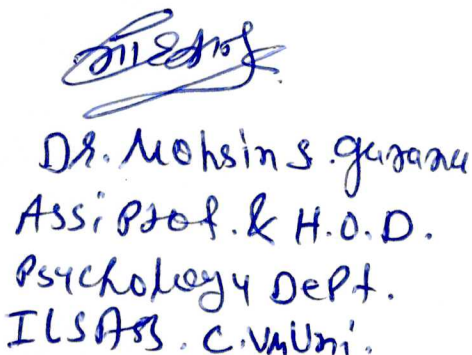 Dr. Mohsin S.
Assi Prof. & H.O.D.
Psychology Dept.
ILSASS. C.VM Uni.